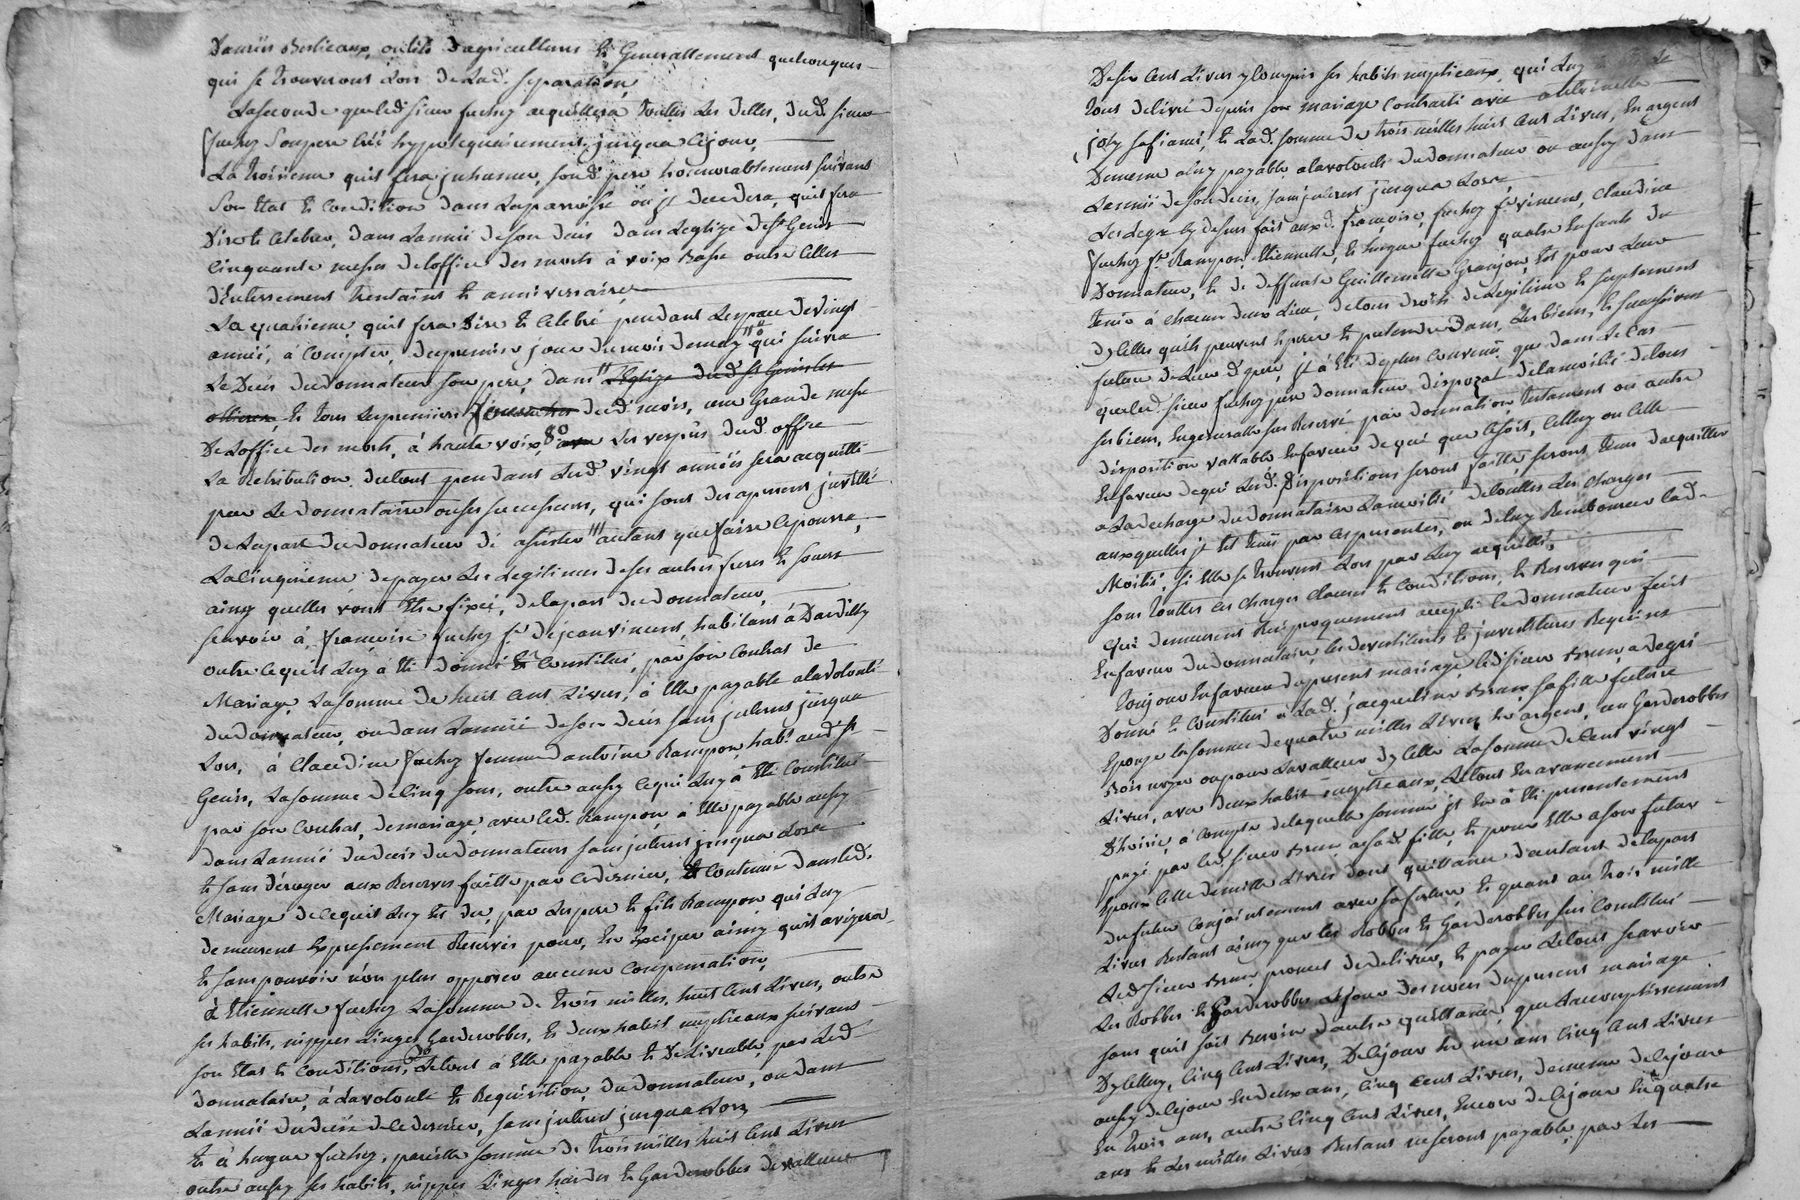 Denrées bestieaux, outils d'agriculture, et Generallement quelconques
qui se trouverons Lors de Lad. separation,
La seconde que led. sieur fuchez acquittera touttes Les dettes, dud. sieur
fuchez son pere Créé hypotequairement jusqua ce jour,
La troisieme quil fera jnhumer, sond. pere honnorablement suivant
son Etat et condition dans La parroisse où jl decedera, quil fera
Dire et celebrer, dans L'année de son decès dans L'eglize de St. Genis
Cinquante messes de L'office des morts à voix Basse outre celles
d'Enterrement trentaine et anniversaire,
La quatrieme, quil fera Dire et celebré pendant L'espace de vingt
année, à compter, du premier jour du mois de may qui suivra
Le Decès du donnateur son pere, dans L'Eglize dud. St. Genis les
ollieres, et tous Les premiers dud. mois, une Grande messe
De L'office des morts, à haute voix, 8o avec Les vespres dud. office
La Retribution, du tout pendant Lesd. vingt années sera acquitté
par Le donnataire ou ses successeurs, qui sont des a present jnvitté
de La part du donnateur d'i assister autant que faire ce pourra,
La cinquieme, de payer Les Legitimes de ses autres freres et soeurs
ainsy quelles vont Etre fixée, de La part du donnateur,
scavoir à françoise fuchez fe. de jean vincent, habitans à Dardilly
outre ce quil Luy a Eté donné et Constitué, par son contrat de
Mariage, La somme de huit cent Livres, à Elle payable à la volonté
du donnateur, ou dans L'année de son decès sans jnterest jusqua
Lors, à Claudine fuchez femme d'antoine Rampon, habt. aud. St
Genis, La somme de Cinq sons, outre aussy ce qui Luy à Eté Constitué
par son contrat, de mariage, avec Led. Rampon, à Elle payable aussy
dans L'année du decès du donnateur sans jnterest jusqua Lors
et sans déroger aux Reserves faitte par ce dernier, et contenue dans led.
Mariage de ce quil Luy est du, par Les pere et fils Rampon qui Luy
demeurent Expressement Reservés pour, En Exciper ainsy quil avizera
et sans pouvoir non plus opposer aucune compensation,
à Etiennette fuchez La somme de trois milles, huit Cent Livres, outre
ses habits, nippes Linges Garderobbes, et deux habit nuptieaux suivant
son Etat et conditions, Le tout à Elle payable et Delivrable, par Led.
donnataire, à La volonté et Requisition, du donnateur, ou dans
L'année du decès de ce dernier, sans jnterest jusqua Lors,
et à hugue fuchez, pareille somme de trois milles huit Cent Livres
outre aussy ses habits, nippes Linges hardes et Garderobbes de valleur
De six Cent Livres y Compris ses habits nuptieaux, qui Luy
tous delivré depuis son mariage Contracté avec antoinette
joly sa fiamé, et Lad. somme de trois milles huit Cent Livres, En argent
Demeure à Luy payable, à la volonté du donnateur ou aussy dans
L'année de son decès, sans jnterest jusqua Lors
Les Legs cy dessus fait aux d. françoise, fuchez fe. vincent, Claudine
fuchez fe. Rampon, Etiennette, et hugue fuchez quatre Enfants du
Donnateur, et de deffunte Guillemette Granjon, Est pour Leur
tenir à chacun deux Lieu, de tous droits de Legitime et supplement
d'jcelles quils peuvent Esperer et pretendre dans, Les biens, et successions
future de Leur d. pere, jl à Eté de plus Convenu que dans Le cas
que led. sieur fuchez pere donnateur, dispozat de la moitié de tous
ses biens, En general, se Reservé par donnation, testament ou autre
disposition vallable Enfaveur de qui que ce soit, Celluy ou celle
Enfaveur de qui Lesd. dispositions seront faitte, seront tenus d'acquitter
a La decharge du donnataire La moitié de touttes Les charges
auxquelles jl Est tenu par ces presentes, ou de Luy Rembourser Lad.
Moitié, si Elle se trouvent Lors par Luy acquitté,
sous touttes ces charges clauses et conditions, et Reserves qui
qui demeurent Reciproquement accepté le donnateur s'est
Enfaveur du donnataire, les devestitures et jnvestitures Requises
toujour Enfaveur du present mariage, led. sieur Brun, a de gré
Donné et Constitué à Lad. jacqueline Brun sa fille future
Epouze la somme de quatre milles Livres En argent, un Garderobbes
Bois noyer ou pour La valleur d'jcelle La somme de cent vingt
Livres, avec deux habit nuptieaux, Le tout En avancement
D'hoirie, à compte de laquelle somme jl En à Eté presentement
payé par led. sieur Brun à sad. fille, et pour Elle a son futur
Epoux celle de mille Livres dont quittance d'autant de la part
du futur conjointement avec sa future, et quant au trois mille
Livres Restant ainsy que les Robbes et Garderobbes sus Constitué
Led. sieur Brun promet de delivrer, et payer Le tout scavoir
Les Robbes et Garderobbes Le jour des noces du present mariage
sans quil soit Besoin d'autre quittance, que L'accomplissement
D'jcelluy, Cinq Cent Livres, De ce jour En un ans Cinq Cent Livres
aussy de ce jour En deux ans, Cinq Cent Livres, de meme de ce jour
En trois ans, autre Cinq Cent Livres, Encore de ce jour En quatre
ans et Les milles Livres Restant ne seront payable, par Les